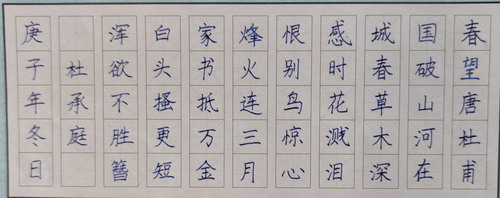 春望唐杜甫
国破山河在
城春草木深
感时花溅泪
恨别鸟惊心
烽火连三月
家书抵万金
白头搔更短
浑欲不胜簪
杜承庭
庚子年冬日